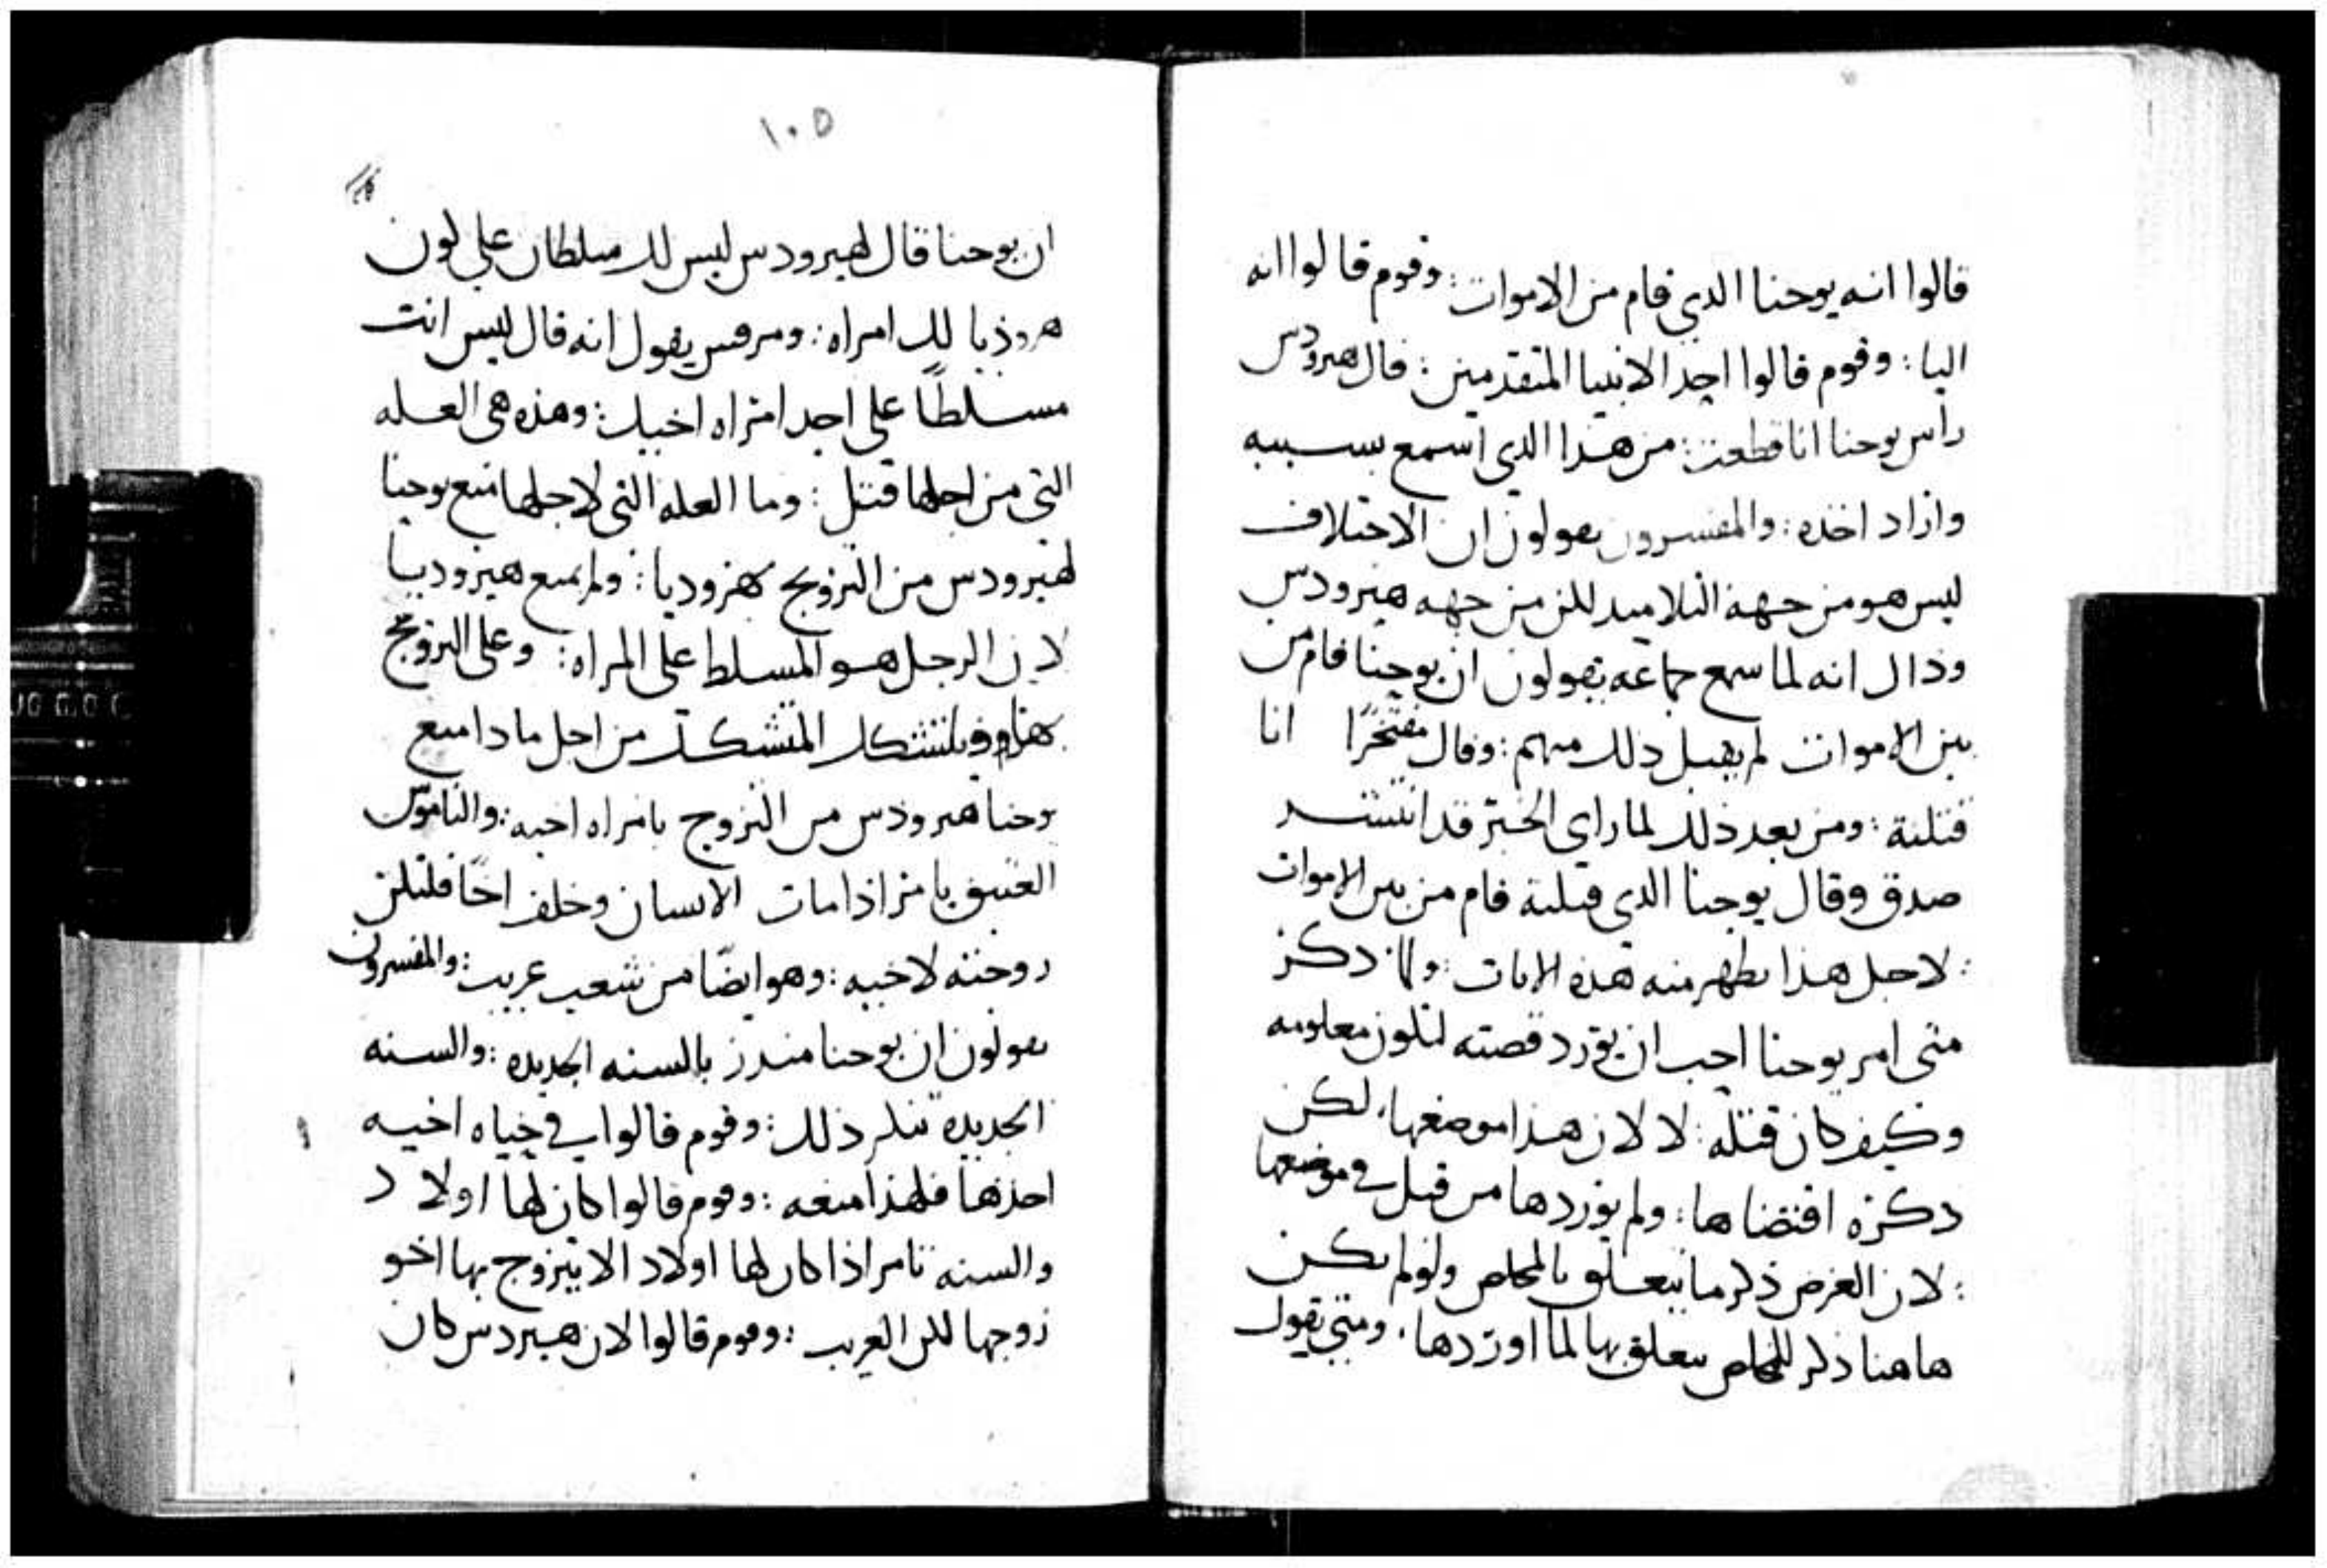 قالوا انه يوحنا الدي قام من الاموات : وقوم قالوا انه
اليا : وقوم قالوا احد الانبيا المتقدمين : قال هيرودس
راس يوحنا انا قطعت : من هذا الدي اسمع بسببه
واراد اخذه : والمفسرون يقولون ان الاختلاف
ليس هو من جهة التلاميد لكن من جهه هيرودس
وذاك انه لما سمع جماعه يقولون ان يوحنا قام من
بين الاموات لم يقبل دلك منهم : وقال مفتخرًا انا
قتلتة : ومن بعد ذلك لما راي الخبر قد انتشر
صدق وقال يوحنا الدي قتلتة قام من بين الاموات
: لاجل هذا يظهر منه هذه الايات : ولما دكر
متى امر يوحنا احب ان يورد قصته لتكون معلومه
وكيف كان قتله : لا لان هذا موضعها ، لكن
دكره اقتضاها : ولم يوردها من قبل في موضعها
: لان الغرض ذكر ما يتعلق بالمخلص ولو لم يكن
هاهنا ذكر للمخلص يتعلق بها لما اوردها ، ومتي يقول
١٠٥
ان يوحنا قال لهيرودس ليس لك سلطان علي كون
هروذيا لك امراه : ومرقس يقول انه قال ليس انت
مسلطًا على احد امراه اخيك : وهذه هي العله
التي من اجلها قتل : وما العله التي لاجلها منع يوحنا
لهيرودس من التزويج بهروديا : ولم يمنع هيروديا
لان الرجل هو المسلط على المراه : وعلى التزويج
بها وقد يتشكك المتشكك من اجل مادا منع
يوحنا هيرودس من التزوج بامراه اخيه : والناموس
العتيق يامر اذا مات الانسان وخلف اخًا فلتكن
زوجته لاخيه : وهو ايضًا من شعب غريب : والمفسرون
يقولون ان يوحنا منذر بالسنه الجديده : والسنه
الجديده تنكر ذلك : وقوم قالوا في حياه اخيه
اخذها فلهذا منعه : وقوم قالوا كان لها اولاد
والسنه تامر اذا كان لها اولاد الا يتزوج بها اخو
زوجها لكن الغريب : وقوم قالوا لان هيردس كان